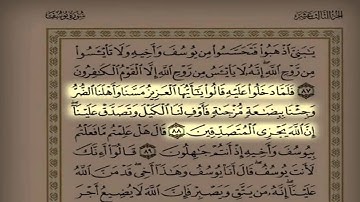 الجزء الثالث عشر سورة يوسف
يَٰبَنِيَّ ٱذْهَبُوا۟ فَتَحَسَّسُوا۟ مِن يُوسُفَ وَأَخِيهِ وَلَا تَا۟يْـَٔسُوا۟
مِن رَّوْحِ ٱللَّهِ إِنَّهُۥ لَا يَا۟يْـَٔسُ مِن رَّوْحِ ٱللَّهِ إِلَّا ٱلْقَوْمُ ٱلْكَٰفِرُونَ
٨٧ فَلَمَّا دَخَلُوا۟ عَلَيْهِ قَالُوا۟ يَٰٓأَيُّهَا ٱلْعَزِيزُ مَسَّنَا وَأَهْلَنَا ٱلضُّرُّ
وَجِئْنَا بِبِضَٰعَةٍ مُّزْجَىٰةٍ فَأَوْفِ لَنَا ٱلْكَيْلَ وَتَصَدَّقْ عَلَيْنَآ
إِنَّ ٱللَّهَ يَجْزِى ٱلْمُتَصَدِّقِينَ ٨٨ قَالَ هَلْ عَلِمْتُم مَّا فَعَلْتُم
بِيُوسُفَ وَأَخِيهِ إِذْ أَنتُمْ جَٰهِلُونَ ٨٩ قَالُوٓا۟ أَءِنَّكَ
لَأَنتَ يُوسُفُ قَالَ أَنَا۠ يُوسُفُ وَهَٰذَآ أَخِى قَدْ مَنَّ ٱللَّهُ
عَلَيْنَآ إِنَّهُۥ مَن يَتَّقِ وَيَصْبِرْ فَإِنَّ ٱللَّهَ لَا يُضِيعُ أَجْرَ